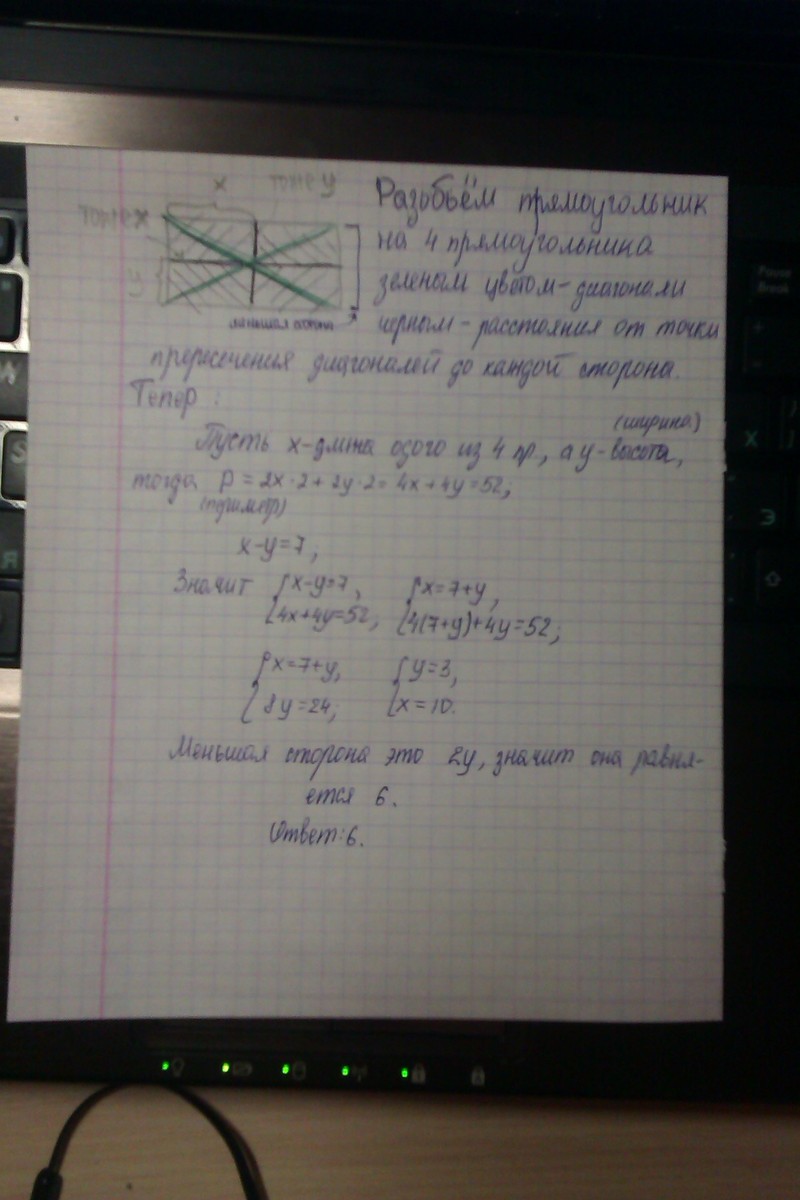 x тоже y
тоже x
y
Разобьём прямоугольник
на 4 прямоугольника
зеленым цветом - диагонали
черным - расстояния от точки
прересечения диагоналей до каждой сторона.
Тепер:
(ширина)
Пусть x - длина одого из 4 пр, а y - высота,
тогда P = 2x·2 + 2y·2 = 4x + 4y = 52;
(периметр)
x-y=7,
Значит {x-y=7, {x=7+y,
{4x+4y=52; {4(7+y)+4y=52;
{x=7+y, {y=3,
{8y=24; {x=10.
Меньшая сторона это 2y, значит она равня-
ется 6.
Ответ: 6.
Pause
Break
W
S
Я
X
Э